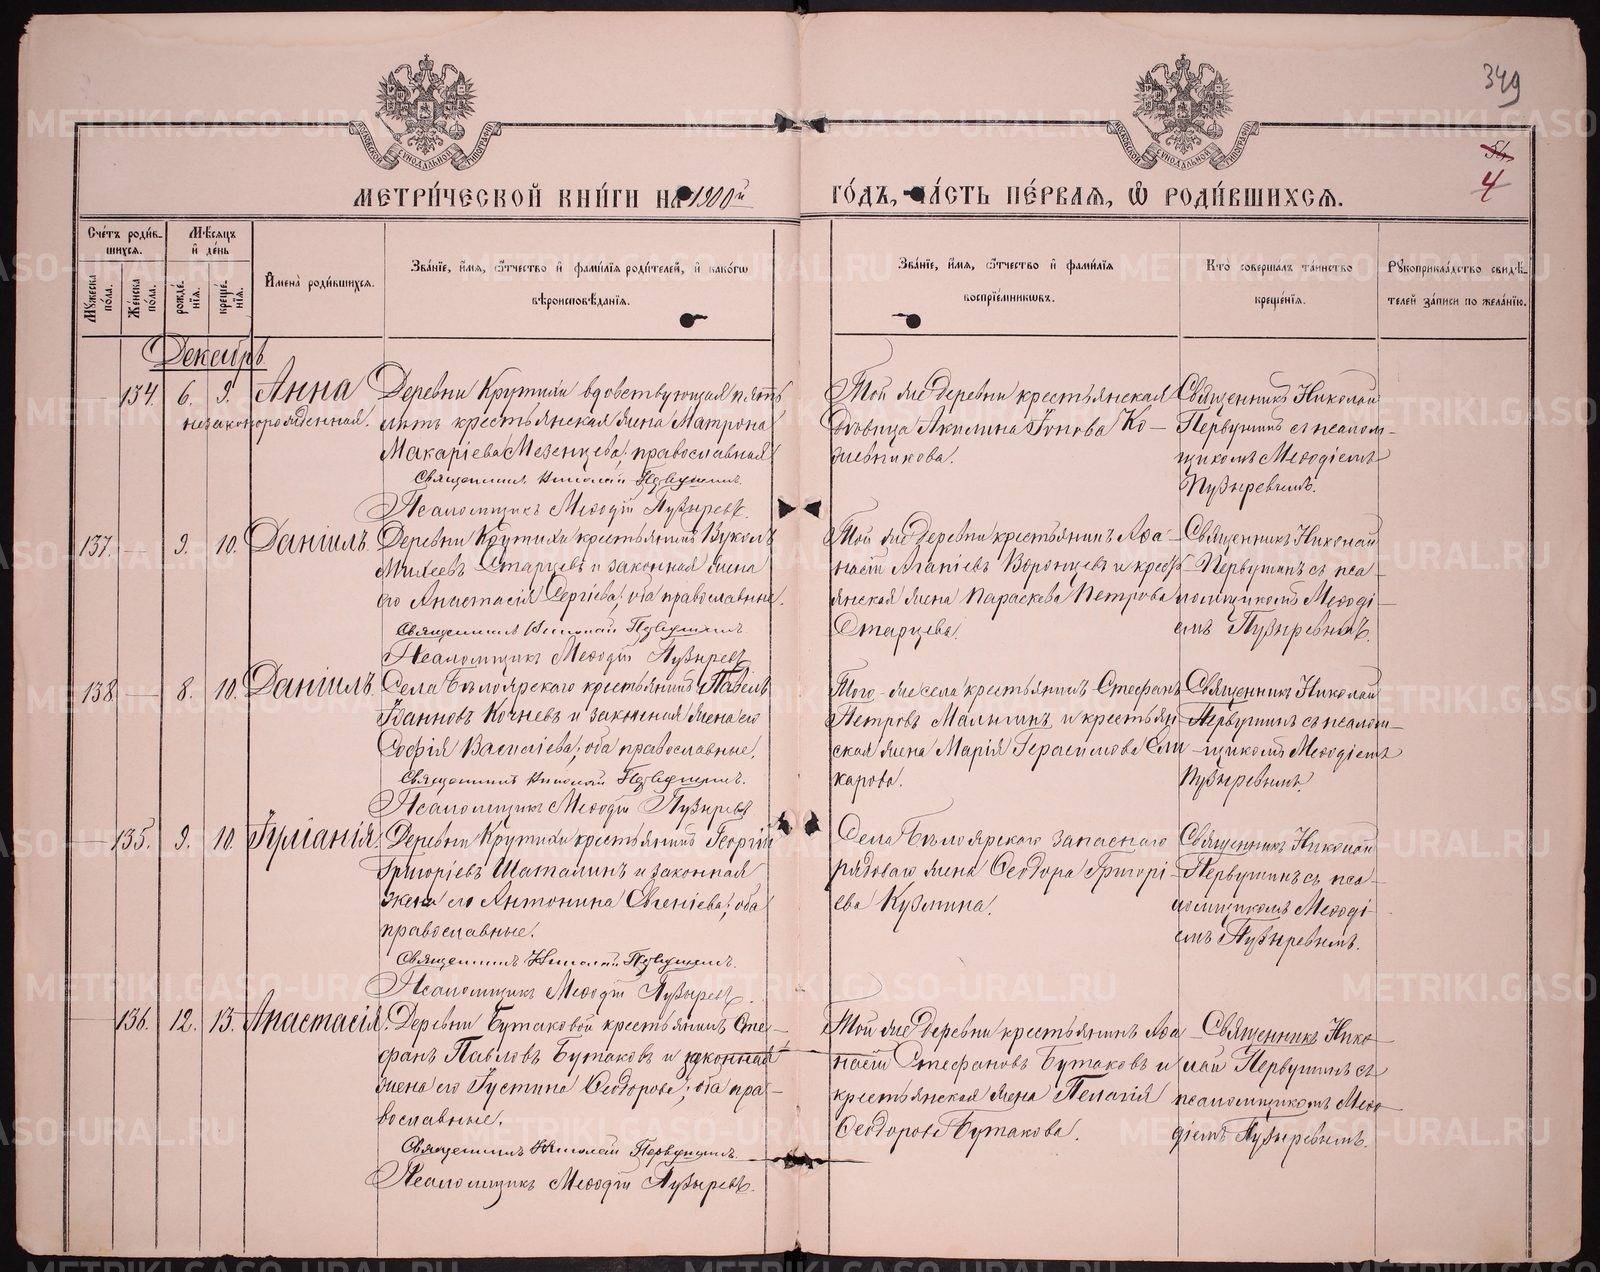 349
54
4
МЕТРИ́ЧЕСКОЙ КНИ́ГИ НА 1900й ГО́ДЪ, ЧА́СТЬ ПЕ́РВАѦ, Ѡ҆ РОДИ́ВШИХСѦ.
Сче́тъ роди́в-
шихсѧ.
Мѣ́сѧцъ
и҆ де́нь
Мꙋ́жеска
по́ла.
Же́нска
по́ла.
рожде́-
нїѧ.
креще́-
нїѧ.
И҆мена̀ роди́вшихсѧ.
Зва́нїе, и҆́мѧ, ѻ҆́тчество и҆ фами́лїѧ роди́телей, и҆ како́гѡ
вѣроисповѣ́данїѧ.
Зва́нїе, и҆́мѧ, ѻ҆́тчество и҆ фами́лїѧ
воспрїе́мникѡвъ.
Кто̀ соверша́лъ та́инство
креще́нїѧ.
Рꙋкоприкла́дство свидѣ́-
телей за́писи по жела́нїю.
Декабрь.
134. 6. 9. Анна
незаконорожденная.
Деревни Крутихи вдовствующая пять
лѣтъ крестьянская жена Матрона
Макаріева Мезенцева; православная
Священникъ Николай Первушинъ.
Псаломщикъ Меѳодій Пузыревъ.
Той же деревни крестьянская
вдовица Акилина Іонова Ко-
жевникова.
Священникъ Николай
Первушинъ съ псалом-
щикомъ Меѳодіемъ
Пузыревымъ.
137. — 9. 10. Даніилъ.
Деревни Крутихи крестьянинъ Вуколъ
Михеевъ Старцевъ и законная жена
его Анастасія Сергіева; оба православные.
Священникъ Николай Первушинъ.
Псаломщикъ Меѳодій Пузыревъ
Той же деревни крестьянинъ Аѳа-
насій Агапіевъ Воронцевъ и кресть-
янская жена Параскева Петрова
Старцева.
Священникъ Николай
Первушинъ съ пса-
ломщикомъ Меѳоді-
емъ Пузыревымъ.
138 — 8. 10. Даніилъ
Села Бѣлоярскаго крестьянинъ Павелъ
Іоанновъ Кочневъ и законная жена его
Софія Василіева; оба православные.
Священникъ Николай Первушинъ.
Псаломщикъ Меѳодій Пузыревъ
Того-же села крестьянинъ Стефанъ
Петровъ Малыгинъ и крестьян
ская жена Марія Герасимова Сли
карова.
Священникъ Николай
Первушинъ съ псалом-
щикомъ Меѳодіемъ
Пузыревымъ
— 135. 9. 10. Іуліанія.
Деревни Крутихи крестьянинъ Георгій
Григоріевъ Шаталинъ и законная
жена его Антонина Евгеніева; оба
православные.
Священникъ Николай Первушинъ.
Псаломщикъ Меѳодій Пузыревъ.
Села Бѣлоярскаго запаснаго
рядоваго жена Ѳеодора Григорі-
ева Кузмина.
Священникъ Николай
Первушинъ съ пса-
ломщикомъ Меѳоді-
емъ Пузыревымъ.
136. 12. 13. Анастасія.
Деревни Бутаковой крестьянинъ Сте-
фанъ Павловъ Бутаковъ и законная
жена его Іустина Ѳеодорова; оба пра-
вославные.
Священникъ Николай Первушинъ.
Псаломщикъ Меѳодій Пузыревъ.
Той же деревни крестьянинъ Аѳа
насій Стефановъ Бутаковъ и
крестьянская жена Пелагія
Ѳеодорова Бутакова.
Священникъ Нико-
лай Первушинъ съ
псаломщикомъ Меѳо-
діемъ Пузыревымъ.
METRIKI.GASO-URAL.RU